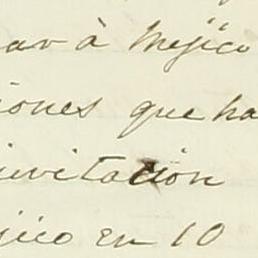 ar à Mejico
iones que ha
invitacion
jico en 10